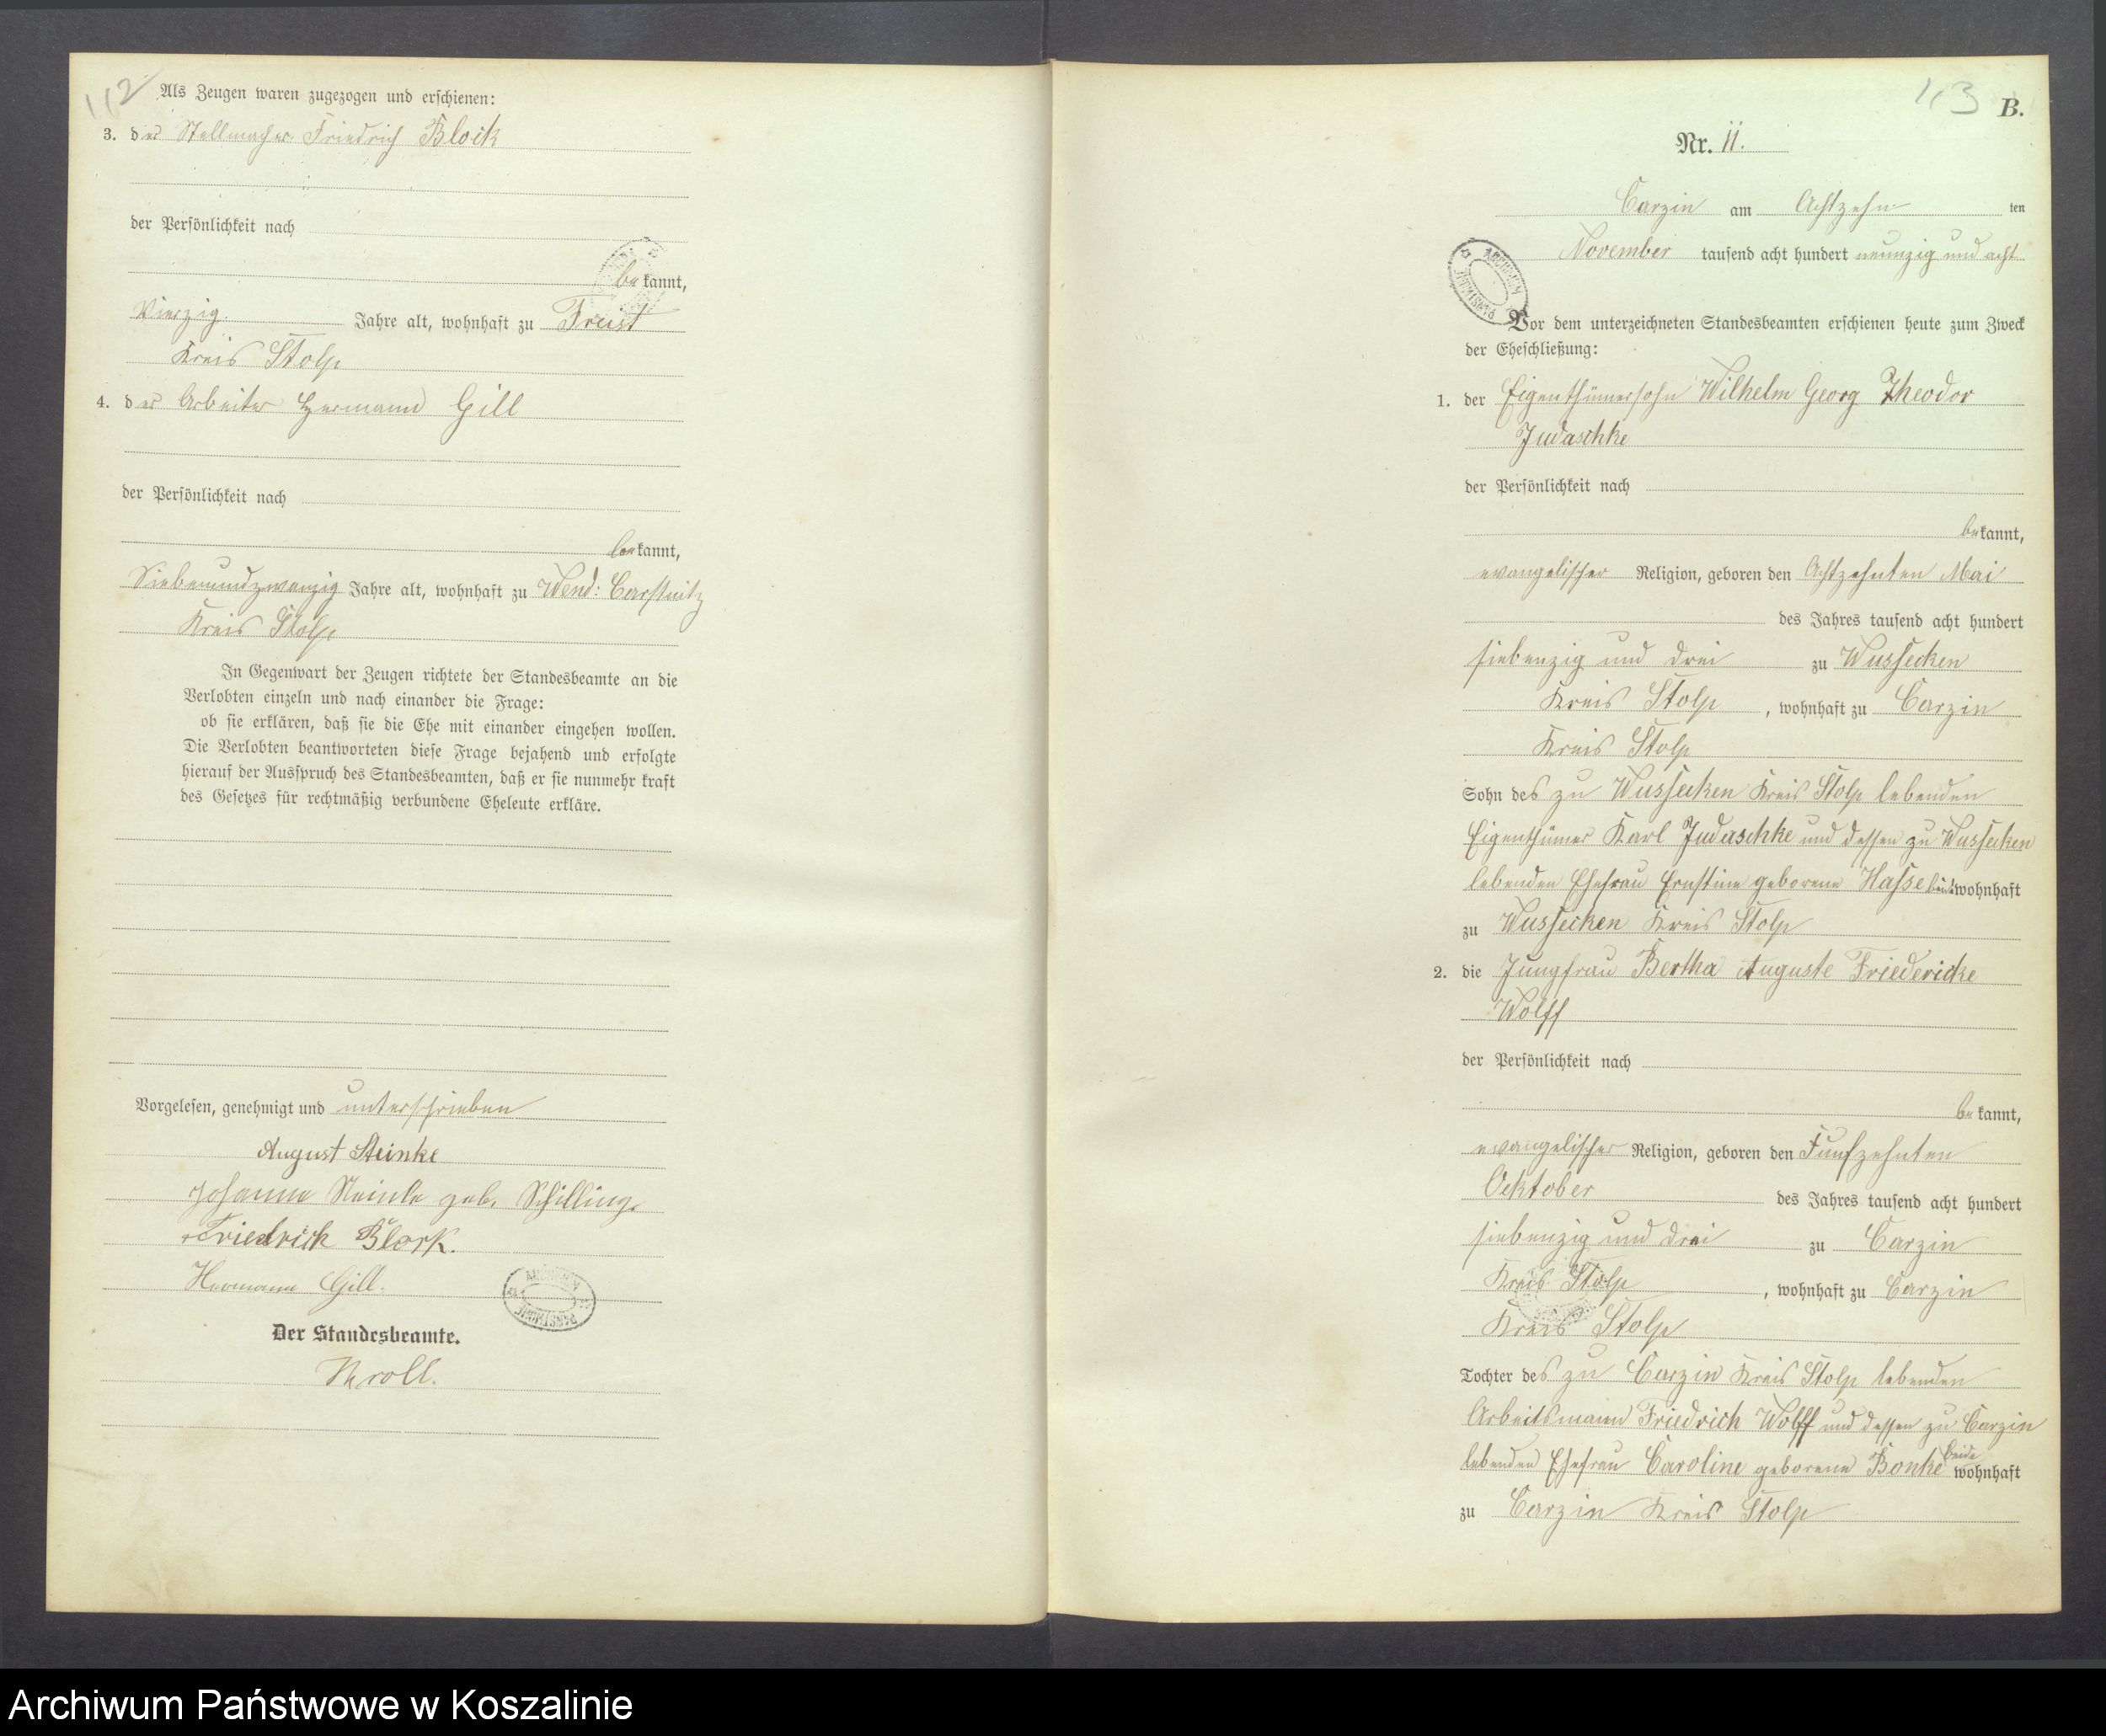 112
Als Zeugen waren zugezogen und erschienen:
3. der Stellmacher Friedrich Block
der Persönlichkeit nach
bekannt,
Vierzig Jahre alt, wohnhaft zu Freist
Kreis Stolp
4. der Arbeiter Hermann Gill
der Persönlichkeit nach
bekannt,
Siebenundzwanzig Jahre alt, wohnhaft zu Wend: Carstnitz
Kreis Stolp
In Gegenwart der Zeugen richtete der Standesbeamte an die
Verlobten einzeln und nach einander die Frage:
ob sie erklären, daß sie die Ehe mit einander eingehen wollen.
Die Verlobten beantworteten diese Frage bejahend und erfolgte
hierauf der Ausspruch des Standesbeamten, daß er sie nunmehr kraft
des Gesetzes für rechtmäßig verbundene Eheleute erkläre.
Vorgelesen, genehmigt und unterschrieben
August Steinke
Johanne Steinke geb. Schilling.
Friedrich Block.
Hermann Gill.
Der Standesbeamte.
Kroll.
113
B.
Nr. 11.
Carzin am Achtzehn ten
November tausend acht hundert neunzig und acht
Vor dem unterzeichneten Standesbeamten erschienen heute zum Zweck
der Eheschließung:
1. der Eigenthümersohn Wilhelm Georg Theodor
Judaschke
der Persönlichkeit nach
bekannt,
evangelischer Religion, geboren den Achtzehnten Mai
des Jahres tausend acht hundert
siebenzig und drei zu Wussecken
Kreis Stolp, wohnhaft zu Carzin
Kreis Stolp
Sohn des zu Wussecken Kreis Stolp lebenden
Eigenthümer Karl Judaschke und dessen zu Wussecken
lebenden Ehefrau Ernstine geborene Hasse beide wohnhaft
zu Wussecken Kreis Stolp
2. die Jungfrau Bertha Auguste Friedericke
Wolff
der Persönlichkeit nach
bekannt,
evangelischer Religion, geboren den Funfzehnten
Oektober des Jahres tausend acht hundert
siebenzig und drei zu Carzin
Kreis Stolp, wohnhaft zu Carzin
Kreis Stolp
Tochter des zu Carzin Kreis Stolp lebenden
Arbeitsmann Friedrich Wolff und dessen zu Carzin
lebenden Ehefrau Caroline geborene Bonke beide wohnhaft
zu Carzin Kreis Stolp
Archiwum Państwowe w Koszalinie